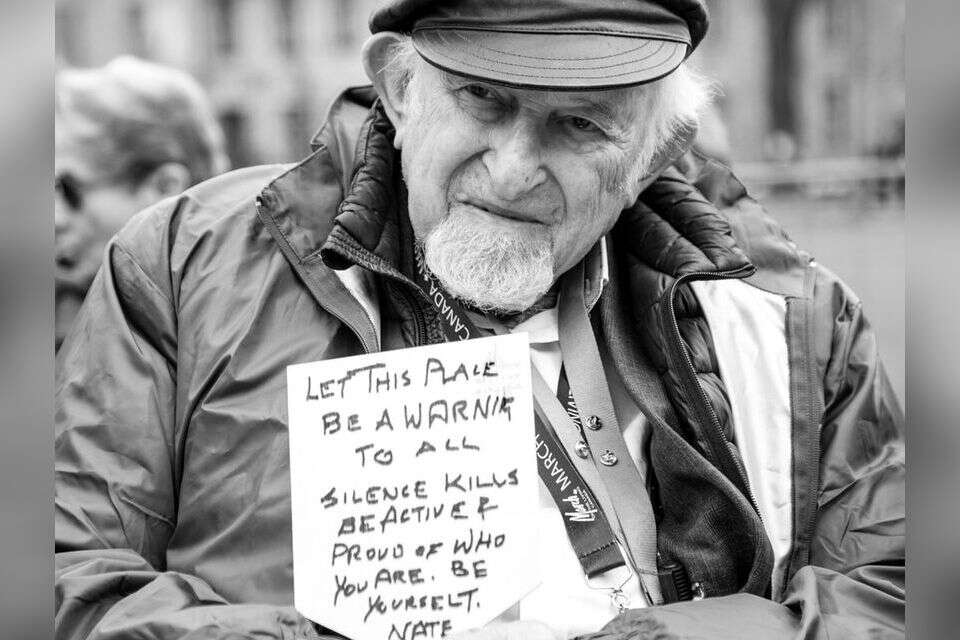 LET THIS PLACE
BE A WARNING
TO ALL
SILENCE KILLS
BE ACTIVE &
PROUD OF WHO
YOU ARE. BE
YOURSELF.
NATE
CANADA
MARCH